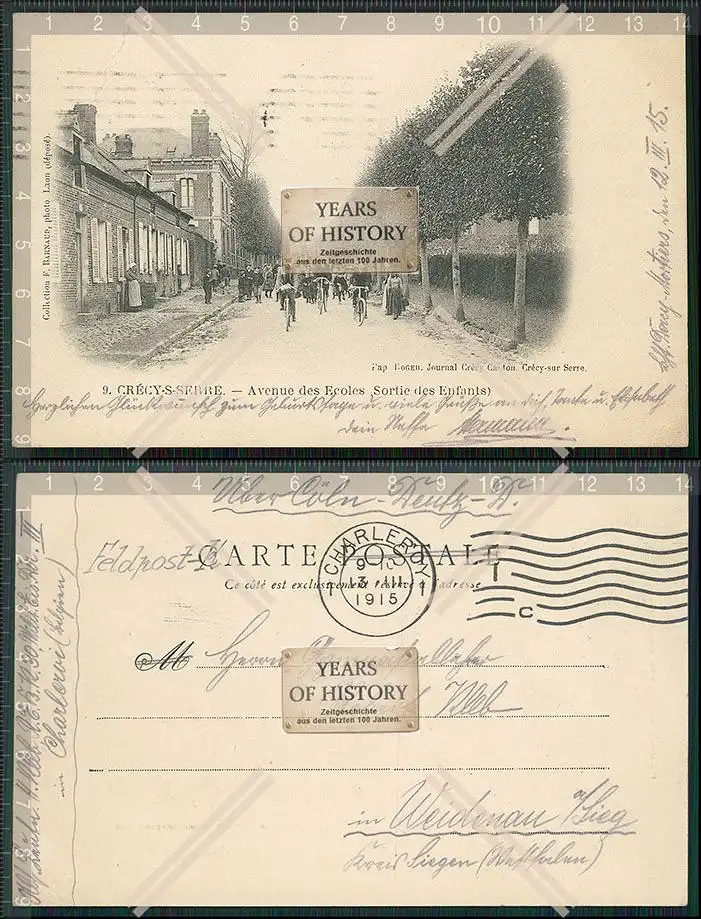 1 2 3 4 5 6 7 8 9 10 11 12 13 14
Collection F. BARNAUD, photo. Laon (déposé).
YEARS
OF HISTORY
Zeitgeschichte
aus den letzten 100 Jahren.
den 12. III. 15.
Pap. ROGER, Journal Crécy Canton, Crécy-sur Serre.
9. CRÉCY-S-SERRE. — Avenue des Ecoles (Sortie des Enfants)
Herzlichen Glückwunsch zum Geburtstage u. viele Grüße an dich, Tante u. Elisabeth
dein Neffe Hermann.
1 2 3 4 5 6 7 8 9 10 11 12 13 14
Über Cöln-Deutz-
Feldpost-K
CARTE POSTALE
Ce côté est exclusivement réservé à l'adresse
CHARLEROY
9
13 III
1915
1 1
T
C
M Herrn
YEARS
OF HISTORY
Zeitgeschichte
aus den letzten 100 Jahren.
in Weidenau a/Sieg
Kreis Siegen (Westfalen)
in Charleroi (Belgien)